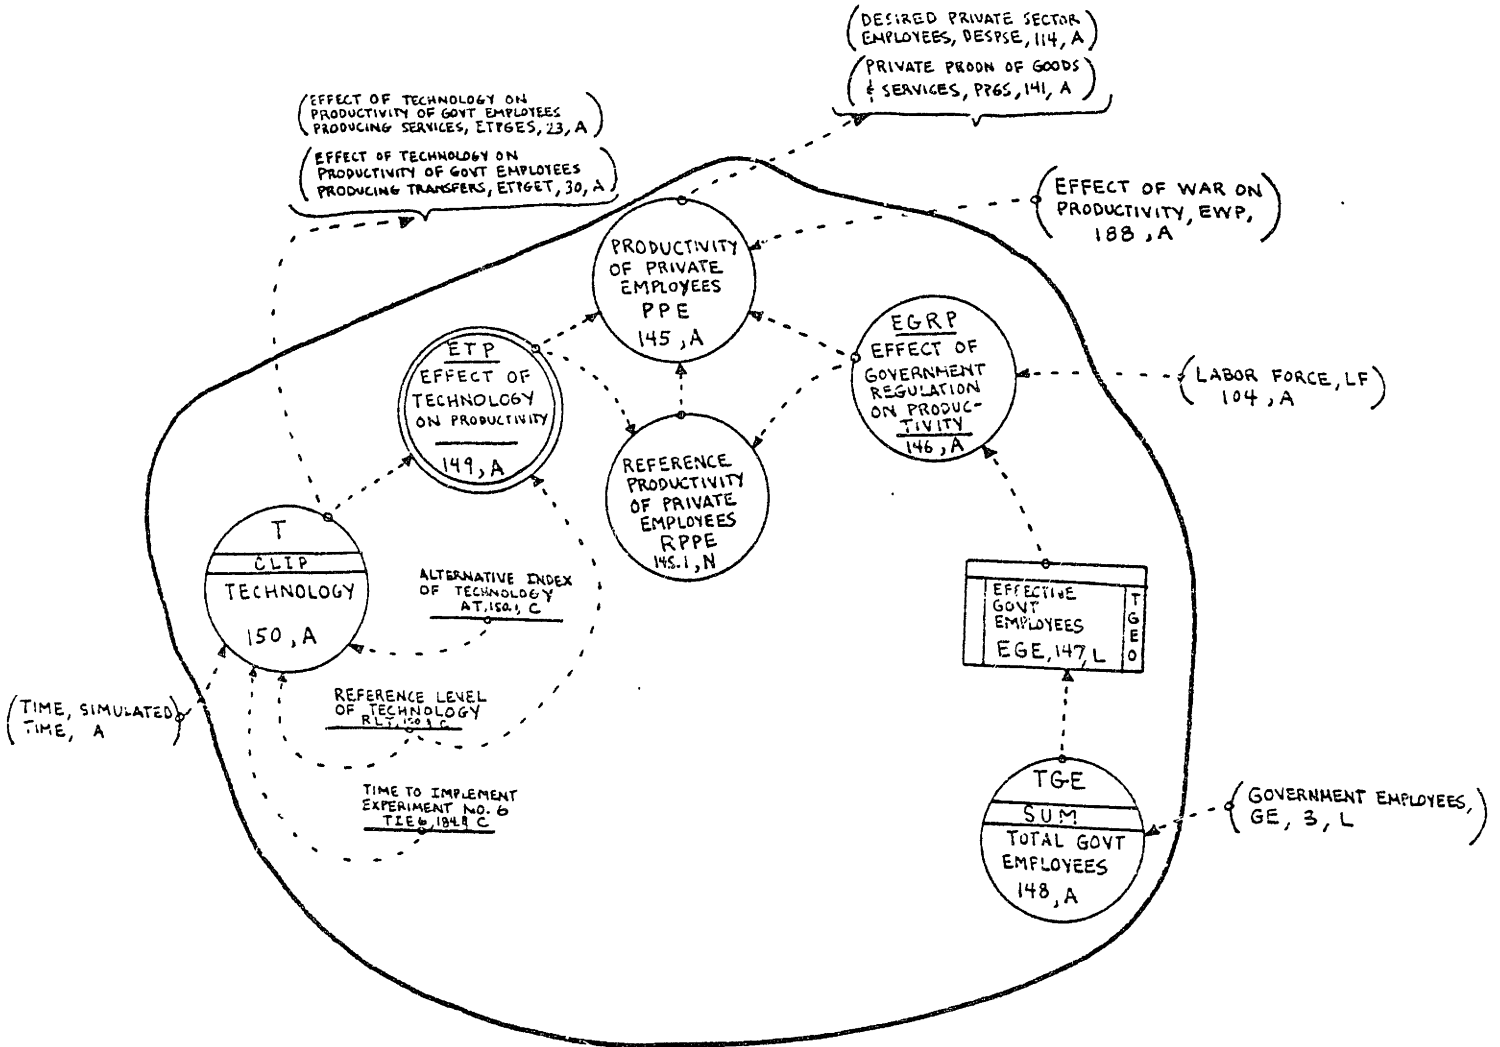 (DESIRED PRIVATE SECTOR
EMPLOYEES, DESPSE, 114, A)
(PRIVATE PRODN OF GOODS
& SERVICES, PPGS, 141, A)
(EFFECT OF TECHNOLOGY ON
PRODUCTIVITY OF GOVT EMPLOYEES
PRODUCING SERVICES, ETPGES, 23, A)
(EFFECT OF TECHNOLOGY ON
PRODUCTIVITY OF GOVT EMPLOYEES
PRODUCING TRANSFERS, ETPGET, 30, A)
(EFFECT OF WAR ON
PRODUCTIVITY, EWP,
188, A)
PRODUCTIVITY
OF PRIVATE
EMPLOYEES
PPE
145, A
EGRP
EFFECT OF
GOVERNMENT
REGULATION
ON PRODUC-
TIVITY
146, A
ETP
EFFECT OF
TECHNOLOGY
ON PRODUCTIVITY
149, A
(LABOR FORCE, LF)
104, A
REFERENCE
PRODUCTIVITY
OF PRIVATE
EMPLOYEES
RPPE
145.1, N
T
CLIP
TECHNOLOGY
150, A
ALTERNATIVE INDEX
OF TECHNOLOGY
AT, 150.1, C
EFFECTIVE
GOVT
EMPLOYEES
EGE, 147, L
TGEO
REFERENCE LEVEL
OF TECHNOLOGY
RLT, C
(TIME, SIMULATED)
TIME, A
TIME TO IMPLEMENT
EXPERIMENT NO. 6
TIE6, C
TGE
SUM
TOTAL GOVT
EMPLOYEES
148, A
(GOVERNMENT EMPLOYEES,
GE, 3, L)